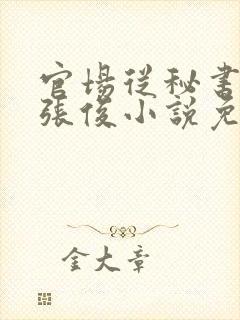 官場從秘書
張俊小說免
金大章